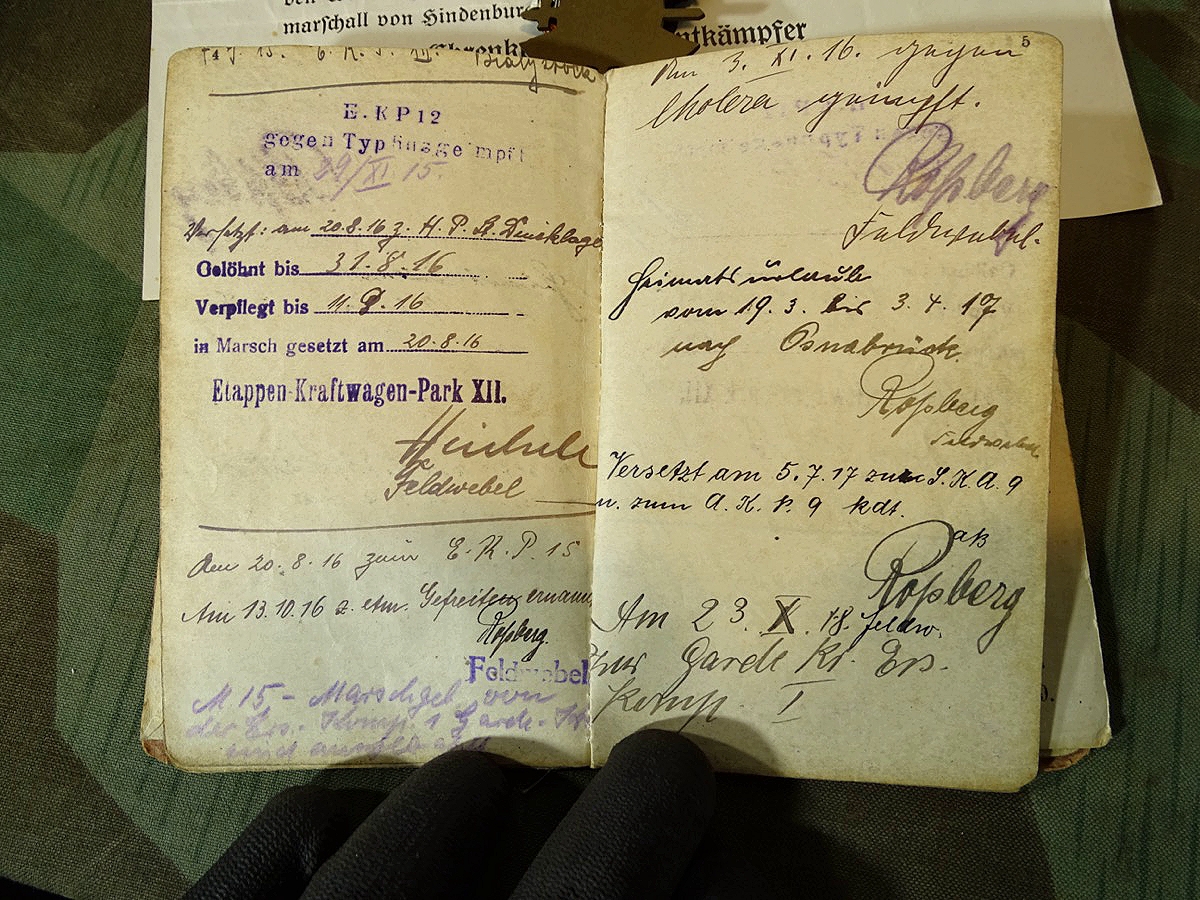 marschall von Hindenburg
ntkämpfer
4
E. K. P.
E. K P 12
gegen Typhusgeimpft
am 29/XI. 15.
Versetzt: am 20.8.16 z. H. P. A.
Gelöhnt bis 31.8.16
Verpflegt bis 11. 9. 16
in Marsch gesetzt am 20.8.16
Etappen-Kraftwagen-Park XII.
Feldwebel
Am 20.8.16 zum E. K. P. 15
Am 13.10.16 z. etm. Gefreiten ernannt
Roßberg
Feldwebel
M 15 - Marschgel. von
der Ers. Komp. 1 Garde-
und
5
Am 3. XI. 16. gegen
Cholera geimpft.
Roßberg
Feldwebel.
Heimatsurlaub
vom 19. 3. bis 3. 4. 17
nach Osnabrück.
Roßberg
Feldwebel
Versetzt am 5.7.17 zum S. K. A. 9
u. zum A. K. P. 9 kdt.
Roßberg
Feldw.
Am 23. X. 18.
zur Garde Kr. Ers.
Komp. I